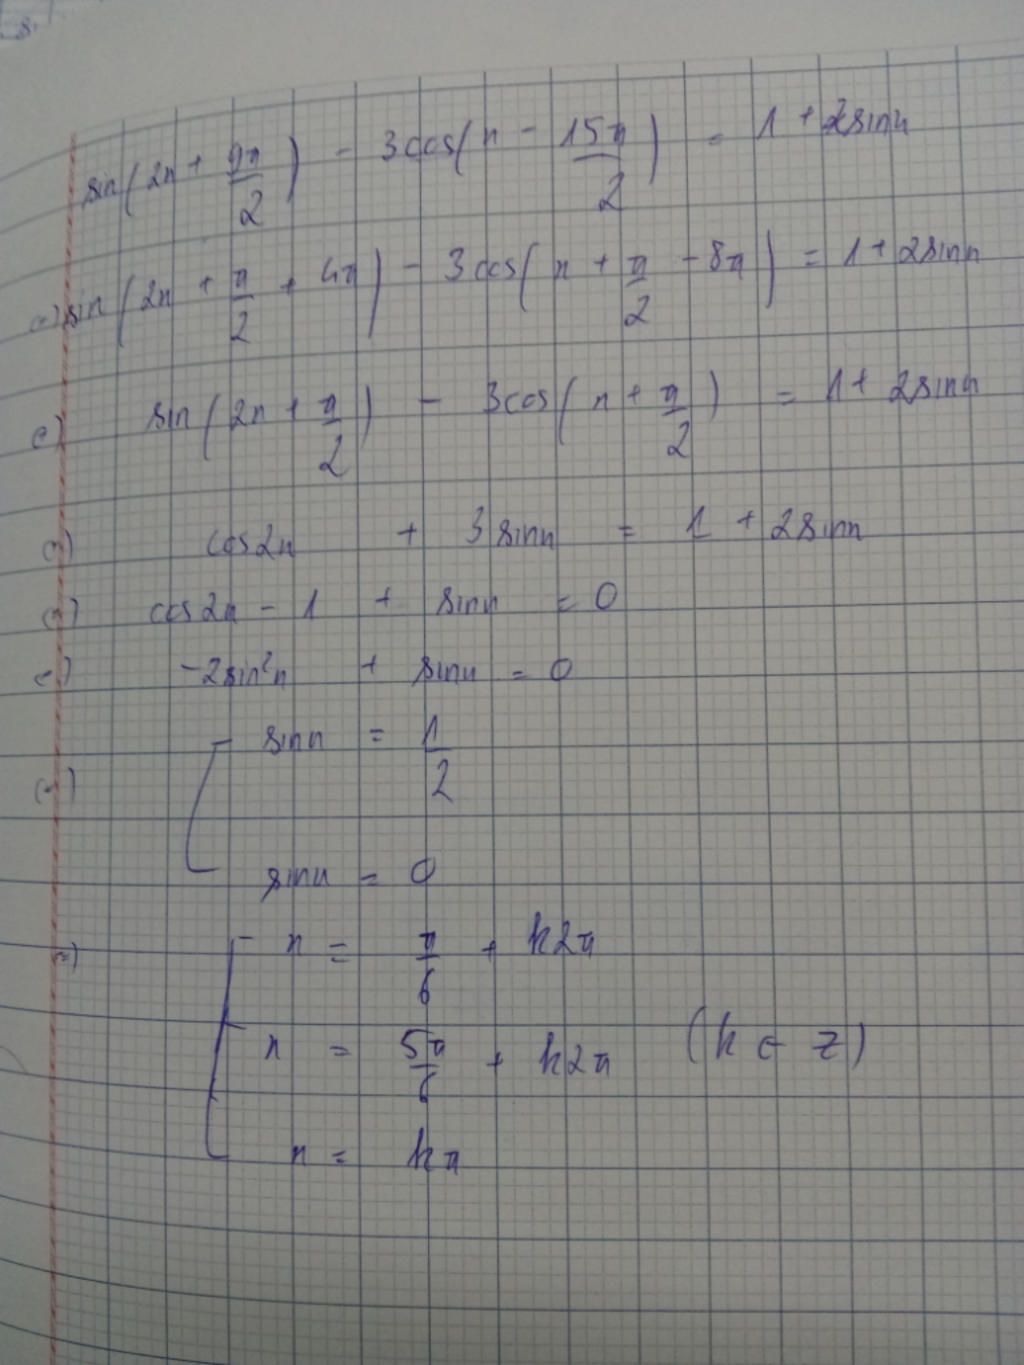 sin(2x + 9π/2) - 3cos(x - 15π/2) = 1 + 2sinx
(=) sin(2x + π/2 + 4π) - 3cos(x + π/2 - 8π) = 1 + 2sinx
(=) sin(2x + π/2) - 3cos(x + π/2) = 1 + 2sinx
(=) cos2x + 3sinx = 1 + 2sinx
(=) cos2x - 1 + sinx = 0
(=) -2sin²x + sinx = 0
(=) [ sinx = 1/2
sinx = 0
(=) [ x = π/6 + k2π
x = 5π/6 + k2π (k ∈ Z)
x = kπ